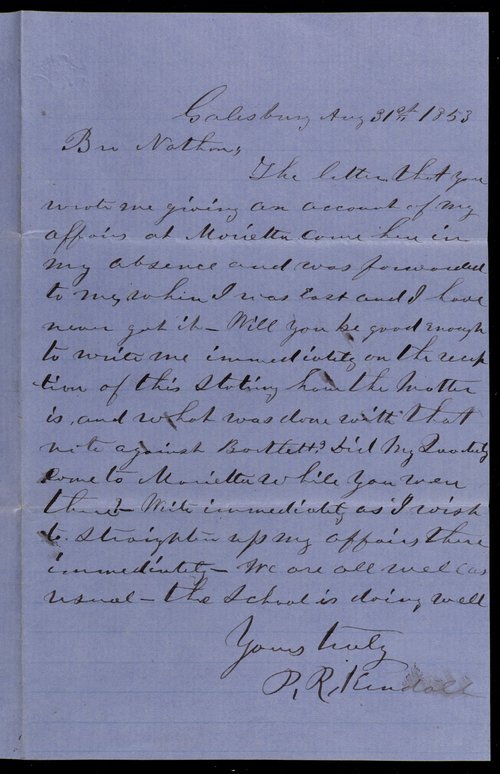 Galesburg Aug 31st 1853
Bro Nathan,
The letter that you
wrote me giving an account of my
affairs at Marietta came here in
my absence and was forwarded
to me, when I was East and I have
never got it – Will you be good enough
to write me immediately on the recep
tion of this stating how the matter
is, and what was done with that
note against Bartlett? Did My
come to Marietta while you were
there? – Write immediately as I wish
to straighten up my affairs there
immediately – We are all well as
usual – the School is doing well
Yours truly
P. R. Kendall